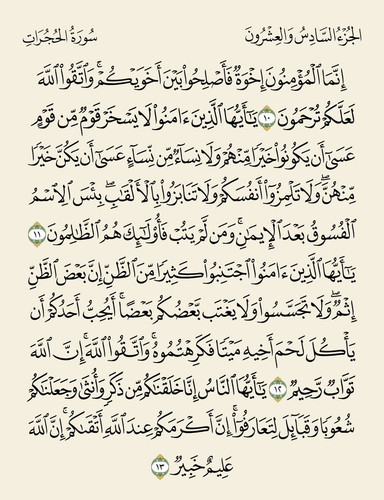 الجزء السادس والعشرون
سورة الحجرات
إِنَّمَا ٱلْمُؤْمِنُونَ إِخْوَةٌ فَأَصْلِحُوا۟ بَيْنَ أَخَوَيْكُمْ ۚ وَٱتَّقُوا۟ ٱللَّهَ
لَعَلَّكُمْ تُرْحَمُونَ ١٠ يَـٰٓأَيُّهَا ٱلَّذِينَ ءَامَنُوا۟ لَا يَسْخَرْ قَوْمٌ مِّن قَوْمٍ
عَسَىٰٓ أَن يَكُونُوا۟ خَيْرًا مِّنْهُمْ وَلَا نِسَآءٌ مِّن نِّسَآءٍ عَسَىٰٓ أَن يَكُنَّ خَيْرًا
مِّنْهُنَّ ۖ وَلَا تَلْمِزُوٓا۟ أَنفُسَكُمْ وَلَا تَنَابَزُوا۟ بِٱلْأَلْقَـٰبِ ۖ بِئْسَ ٱلِٱسْمُ
ٱلْفُسُوقُ بَعْدَ ٱلْإِيمَـٰنِ ۚ وَمَن لَّمْ يَتُبْ فَأُو۟لَـٰٓئِكَ هُمُ ٱلظَّـٰلِمُونَ ١١
يَـٰٓأَيُّهَا ٱلَّذِينَ ءَامَنُوا۟ ٱجْتَنِبُوا۟ كَثِيرًا مِّنَ ٱلظَّنِّ إِنَّ بَعْضَ ٱلظَّنِّ
إِثْمٌ ۖ وَلَا تَجَسَّسُوا۟ وَلَا يَغْتَب بَّعْضُكُم بَعْضًا ۚ أَيُحِبُّ أَحَدُكُمْ أَن
يَأْكُلَ لَحْمَ أَخِيهِ مَيْتًا فَكَرِهْتُمُوهُ ۚ وَٱتَّقُوا۟ ٱللَّهَ ۚ إِنَّ ٱللَّهَ
تَوَّابٌ رَّحِيمٌ ١٢ يَـٰٓأَيُّهَا ٱلنَّاسُ إِنَّا خَلَقْنَـٰكُم مِّن ذَكَرٍ وَأُنثَىٰ وَجَعَلْنَـٰكُمْ
شُعُوبًا وَقَبَآئِلَ لِتَعَارَفُوٓا۟ ۚ إِنَّ أَكْرَمَكُمْ عِندَ ٱللَّهِ أَتْقَىٰكُمْ ۚ إِنَّ ٱللَّهَ
عَلِيمٌ خَبِيرٌ ١٣